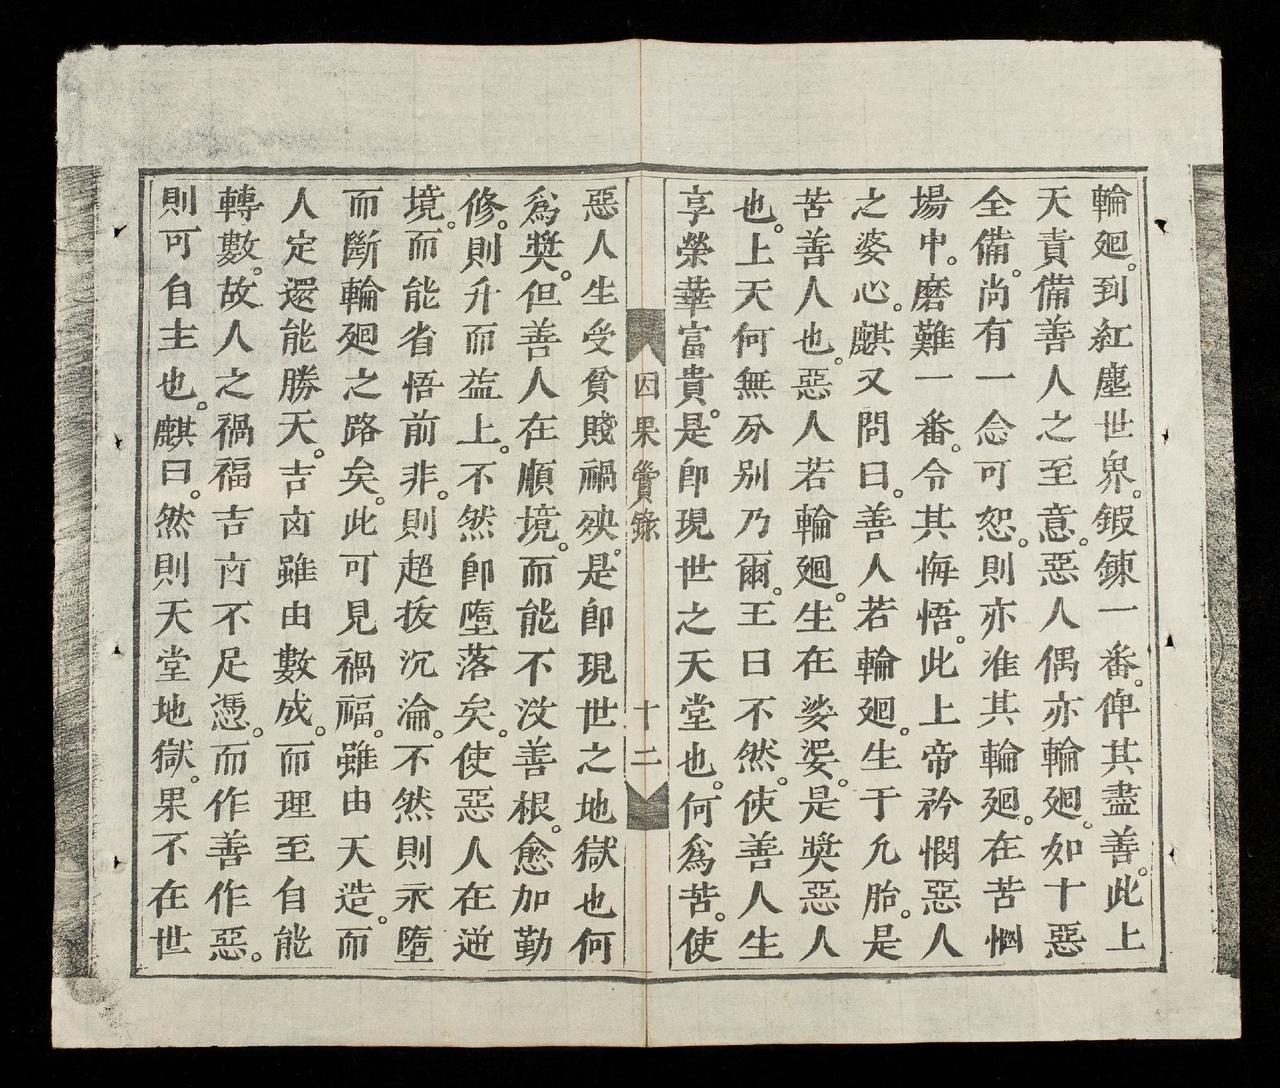 輪廻。到紅塵世界。鍜鍊一番。俾其盡善。此上
天責備善人之至意。惡人偶亦輪廻。如十惡
全備。尚有一念可恕。則亦准其輪廻。在苦惱
場中。磨難一番。令其悔悟。此上帝矜憫惡人
之婆心。麒又問曰。善人若輪廻。生于凢胎。是
苦善人也。惡人若輪廻。生在娑婆。是奬惡人
也。上天何無分别乃爾。王曰不然。使善人生
享榮華富貴。是卽現世之天堂也。何爲苦。使
因果實錄
十二
惡人生受貧賤禍殃。是卽現世之地獄也何
爲奬。但善人在順境。而能不沒善根。愈加勤
修。則升而益上。不然卽墮落矣。使惡人在逆
境。而能省悟前非。則超拔沉淪。不然則永墮
而斷輪廻之路矣。此可見禍福。雖由天造。而
人定還能勝天。吉㐫雖由數成。而理至自能
轉數。故人之禍福吉㐫不足憑。而作善作惡。
則可自主也。麒曰。然則天堂地獄。果不在世